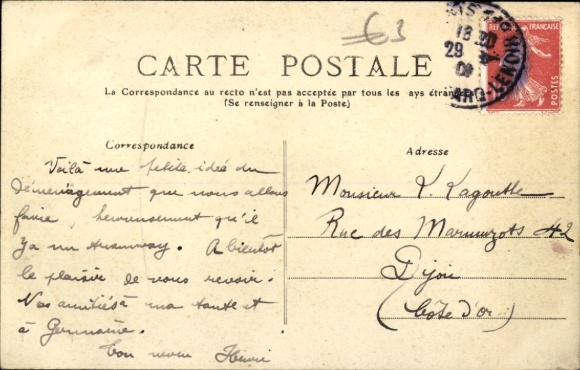 63
CARTE POSTALE
La Correspondance au recto n'est pas acceptée par tous les ays étrangers
(Se renseigner à la Poste)
RÉPUBLIQUE FRANÇAISE
POSTES
18 30
29
09
ARD-LENOIR
Correspondance
Voilà une petite idée du
démenagement que nous allons
faire, heureusement qu'il
ya un tramway. A bientôt
le plaisir de vous revoir.
Nos amitiés à ma tante et
à Germaine.
Ton neveu Henri
Adresse
Monsieur Lagoutte
Rue des Marmuzots 42
Dijon
(Côte d'or)